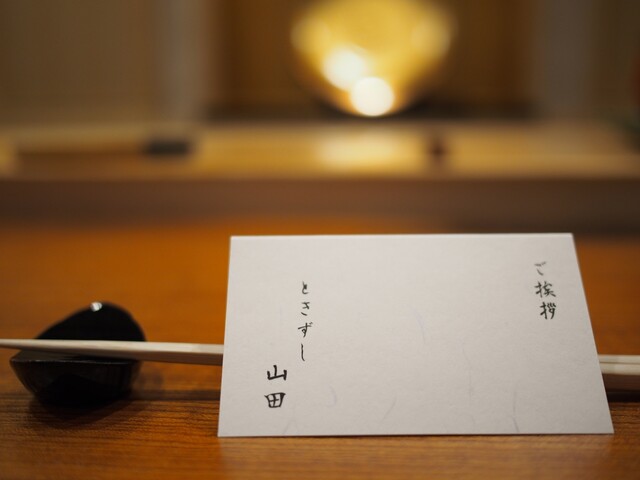 ご挨拶
とさずし
山田